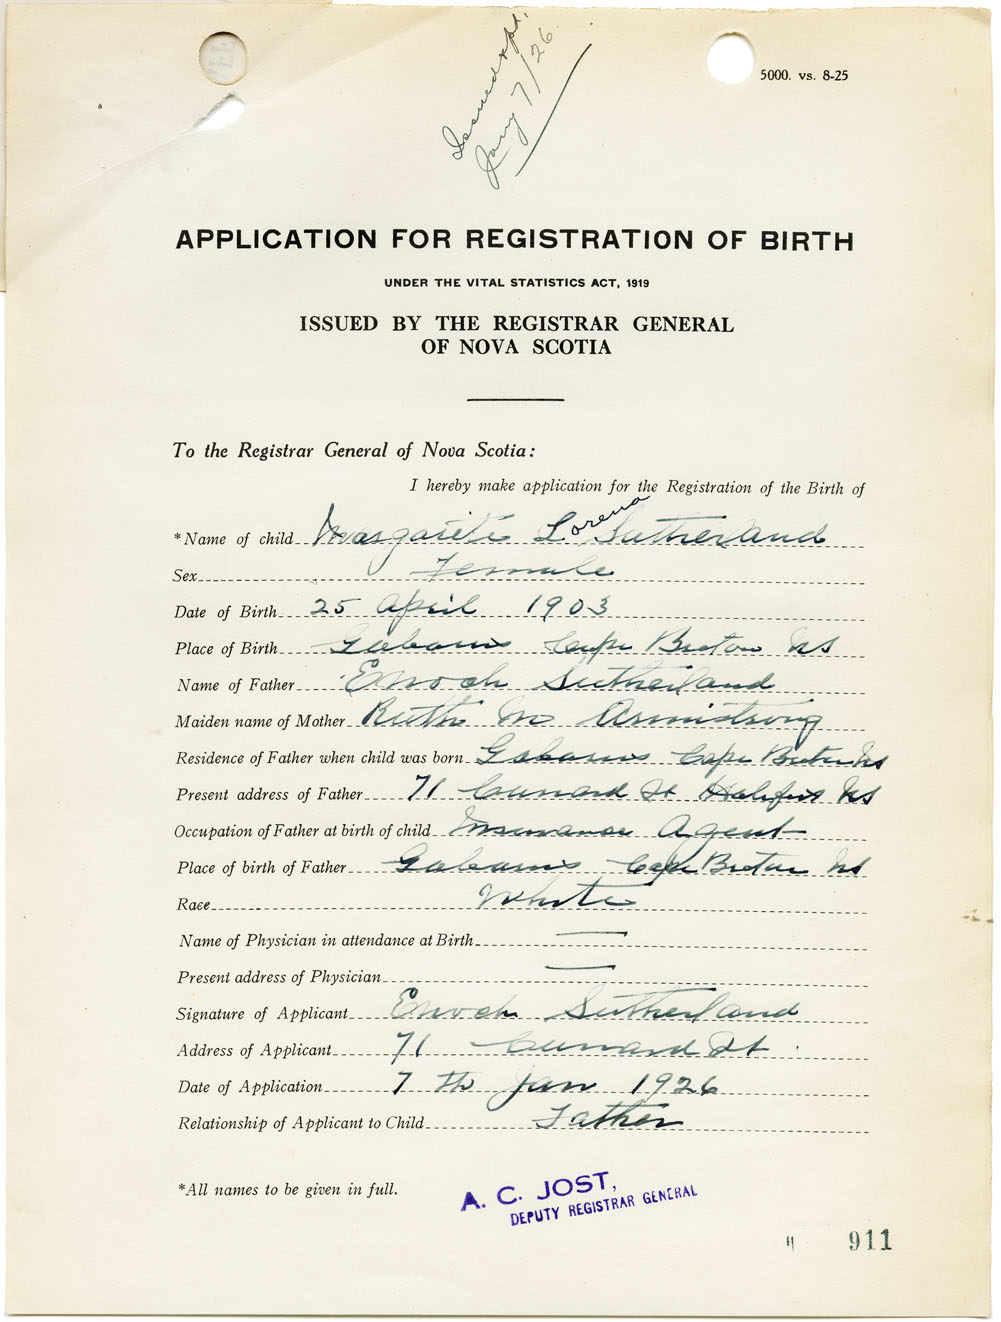 Issued & pd.
Jany 7/26
5000. vs. 8-25
APPLICATION FOR REGISTRATION OF BIRTH
UNDER THE VITAL STATISTICS ACT, 1919
ISSUED BY THE REGISTRAR GENERAL
OF NOVA SCOTIA
To the Registrar General of Nova Scotia:
I hereby make application for the Registration of the Birth of
*Name of child Margarete L. orena Sutherland
Sex Female
Date of Birth 25 April 1903
Place of Birth Gabarus Cape Breton NS
Name of Father Enoch Sutherland
Maiden name of Mother Ruth M Armistrong
Residence of Father when child was born Gabarus Cape Breton NS
Present address of Father 71 Cunard St Halifax NS
Occupation of Father at birth of child Insurance Agent
Place of birth of Father Gabarus Cape Breton NS
Race White
Name of Physician in attendance at Birth
Present address of Physician
Signature of Applicant Enoch Sutherland
Address of Applicant 71 Cunard St.
Date of Application 7 th Jan 1926
Relationship of Applicant to Child Father
*All names to be given in full.
A. C. JOST,
DEPUTY REGISTRAR GENERAL
911